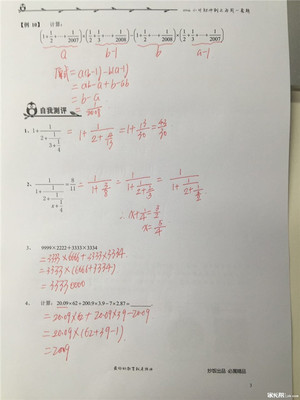 【例 10】 计算:
(1+1/2+…+1/2007)×(1/2+1/3+…+1/2007)-(1+1/2+…+1/2007)×(1/2+1/3+…+1/2007)
a b-1 b a-1
原式=a(b-1)-b(a-1)
=ab-a+b-ab
=b-a
自我测评
1. 1+1/(2+1/(3+1/4)) =1+1/(2+4/13) =1+13/30=43/30
2. 1/(1+1/(2+1/(x+1/4)))=8/11
∴x+1/4=
x=
3. 9999×2222+3333×3334
=3333×6666+3333×3334
=3333×(6666+3334)
=33330000
4. 计算: 20.09×62+200.9×3.9-7×2.87=
=20.09×62+20.09×39-20.09
=20.09×(62+39-1)
=2009
妙极出品 必属精品